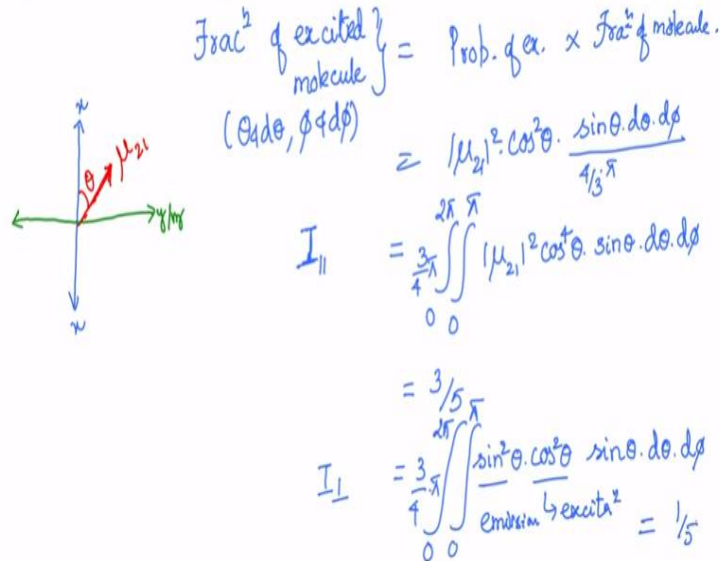 Fracⁿ of excited molecule } = Prob. of ex. × Fracⁿ of molecule.
(θ & dθ, φ & dφ)
= |μ₂₁|² · cos²θ · sinθ.dθ.dφ / 4/3 π
x
θ
μ₂₁
y/z
x
I∥ = 3/4 π ∫₀^2π ∫₀^π |μ₂₁|² cos⁴θ. sinθ. dθ. dφ
= 3/5
I⊥ = 3/4 π ∫₀^2π ∫₀^π sin²θ. cos²θ sinθ. dθ. dφ
emission ↳ excitaⁿ
= 1/5